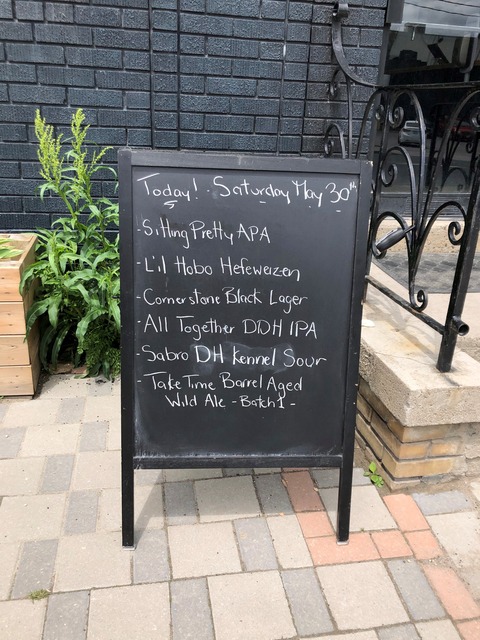 Today! · Saturday May 30th
- Sitting Pretty APA
- L'il Hobo Hefeweizen
- Cornerstone Black Lager
- All Together DDH IPA
- Sabro DH Kennel Sour
- Take Time Barrel Aged
Wild Ale - Batch 1 -